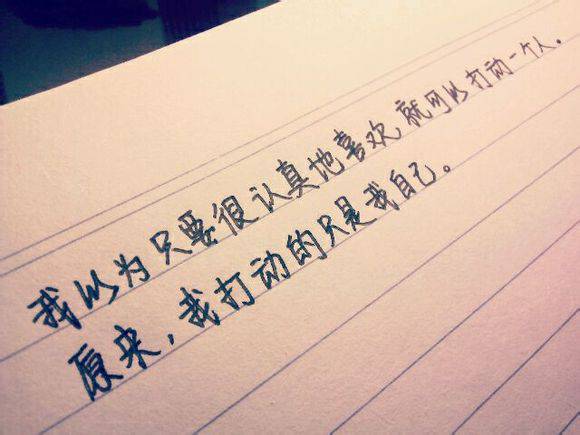 我以为只要很认真地喜欢,就可以打动一个人。
原来,我打动的只是我自己。